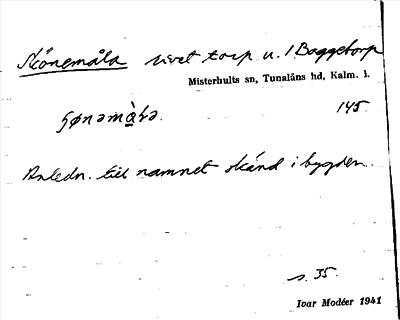 Skönemåla rivet torp u. 1 Baggetorp
Misterhults sn, Tunaläns hd, Kalm. l.
145.
Anledn. till namnet okänd i bygden.
s. 35.
Ivar Modéer 1941